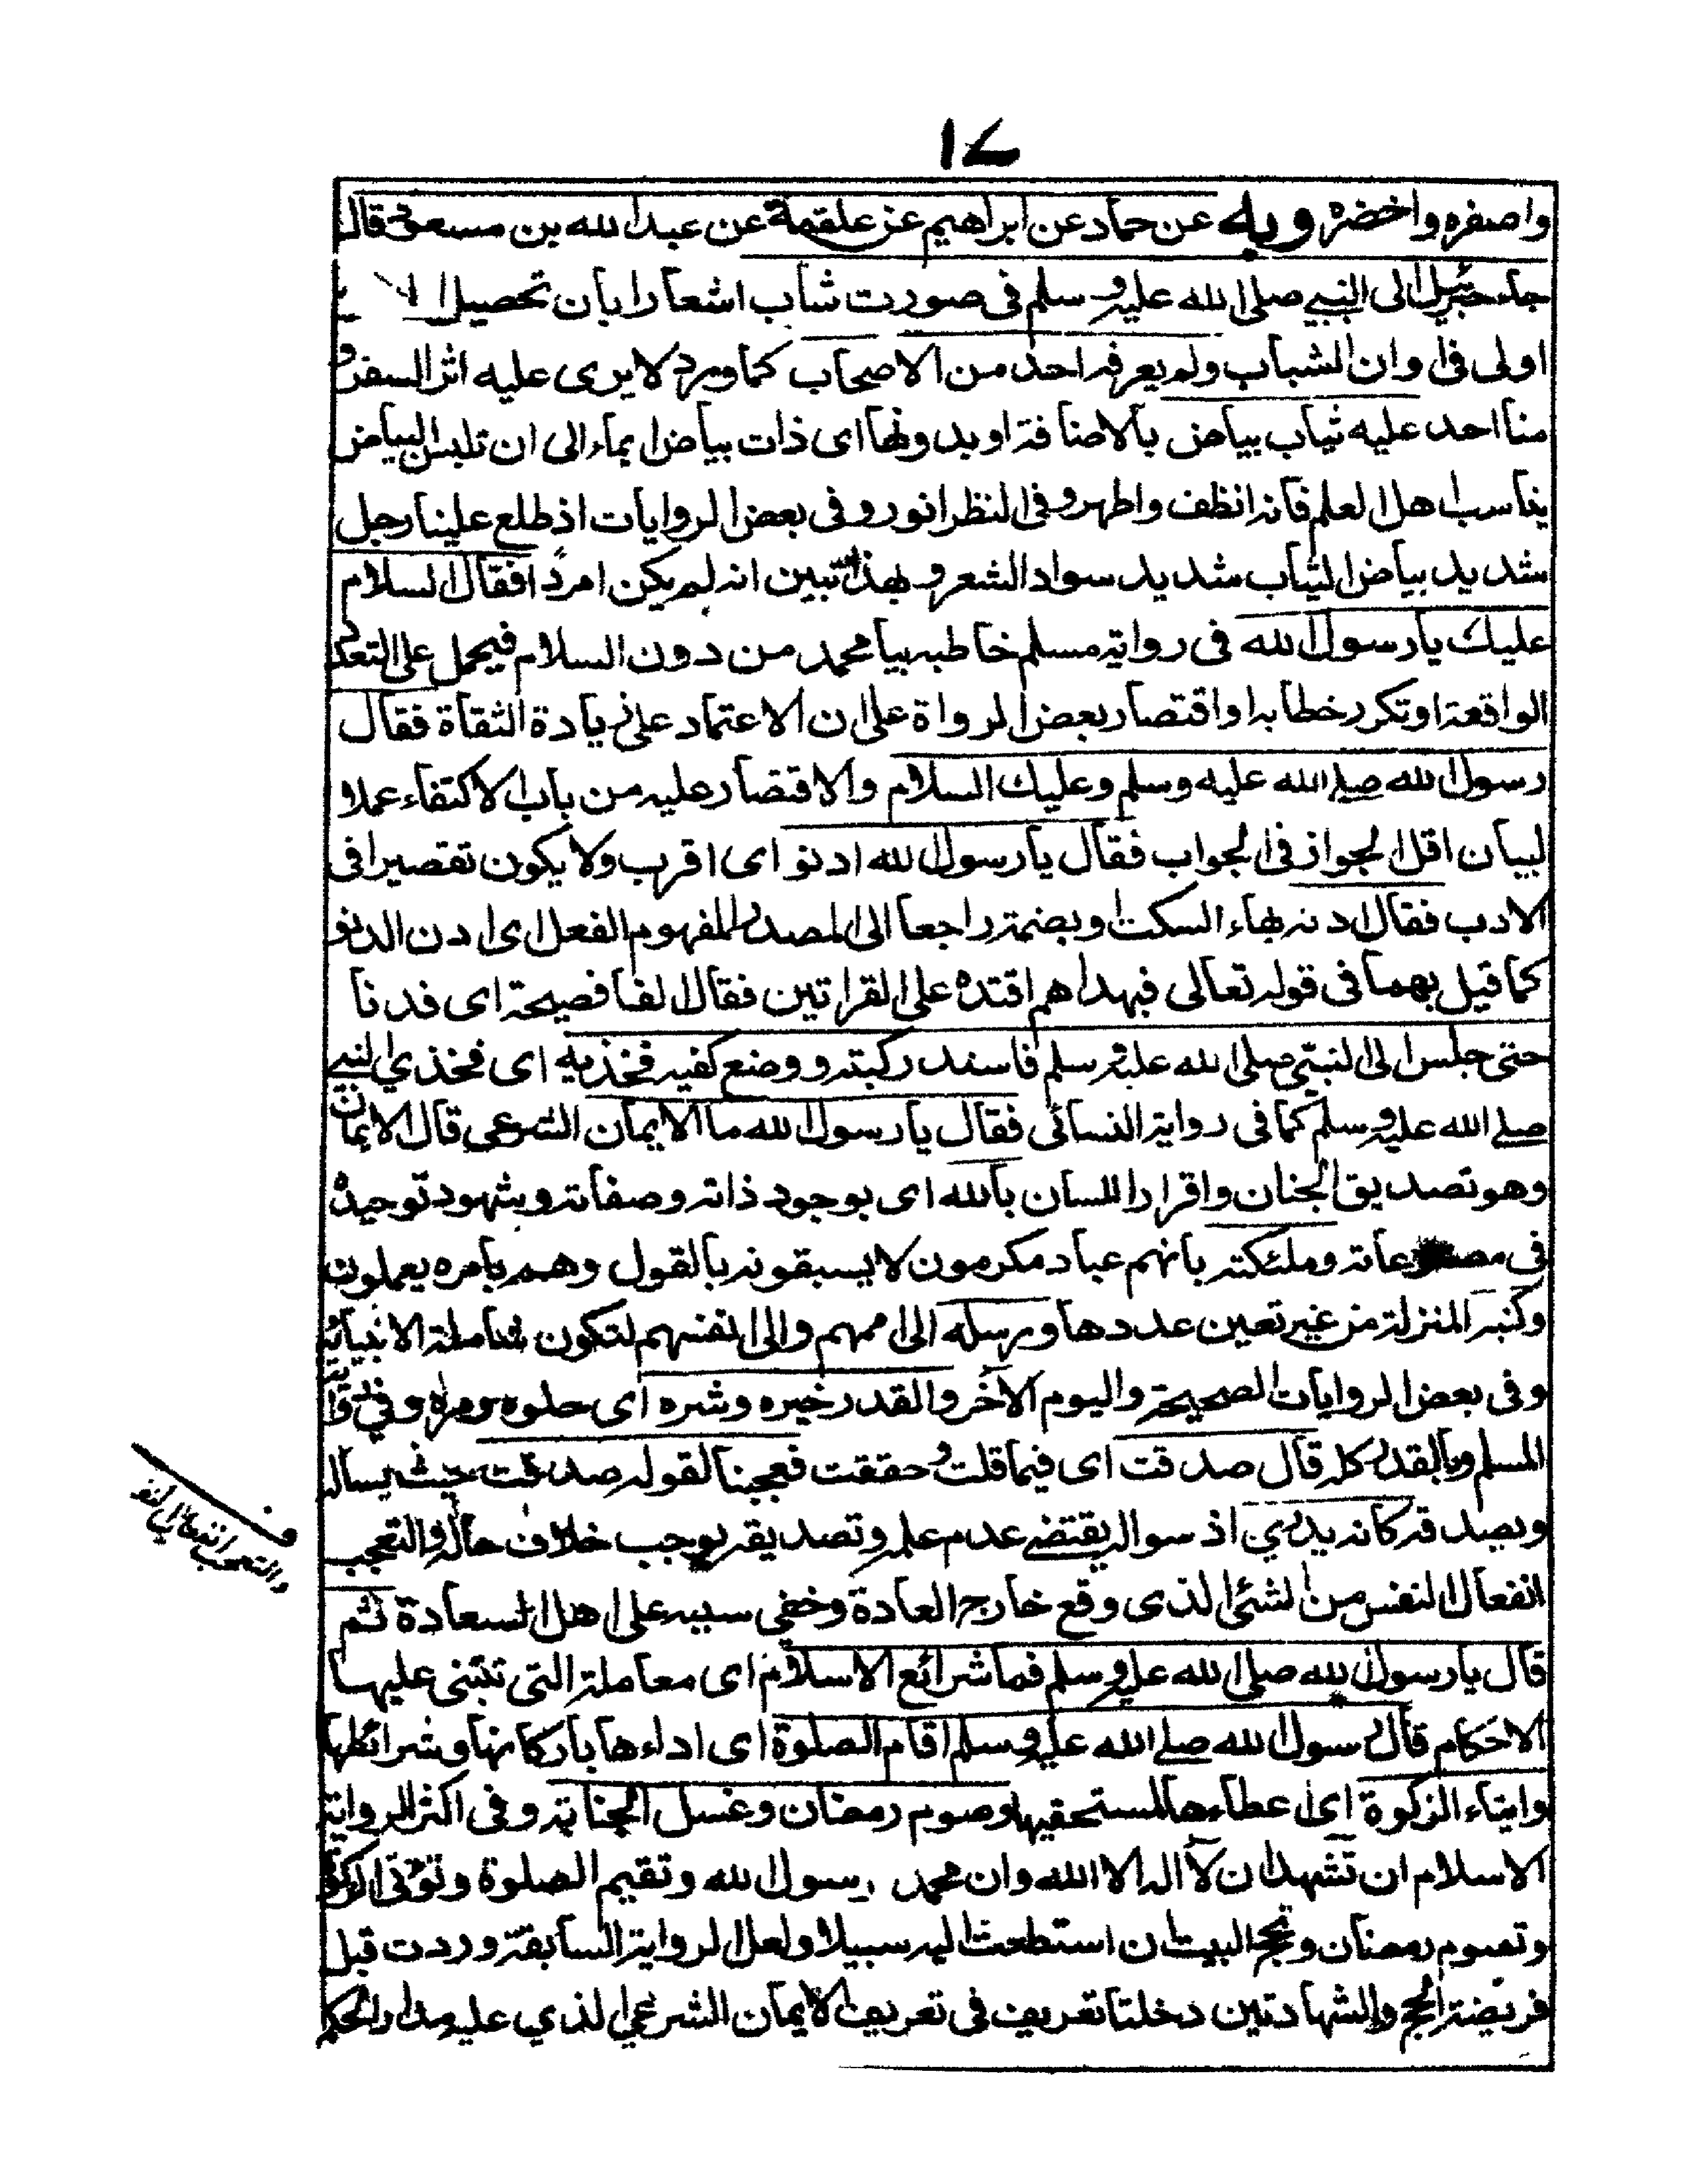 ١٤
واصفره واخضره وبه عن حماد عن ابراهيم عن علقمة عن عبد الله بن مسعود قال
جاء جبرئيل الى النبي صلى الله عليه وسلم في صورت شاب اشعارا بان تحصيل
اولى في اوان الشباب ولم يعرفه احد من الاصحاب كما ورد لا يرى عليه اثر السفر و
منا احد عليه ثياب بياض بالاضافة او بدونها اى ذات بياض ايماء الى ان تلبس البياض
يناسب اهل العلم فانه انظف واطهر وفي النظر انور وفى بعض الروايات اذ طلع علينا رجل
شديد بياض الثياب شديد سواد الشعر و بهذا تبين انه لم يكن امردا فقال السلام
عليك يا رسول الله فى رواية مسلم خاطبه بيا محمد من دون السلام فيحمل على التعدد
الواقعة او تكرر خطابه او اقتصار بعض الرواة على ان الاعتماد على زيادة الثقاة فقال
رسول الله صلى الله عليه وسلم وعليك السلام والاقتصار عليه من باب الاكتفاء عملا
لبيان اقل الجواز فى الجواب فقال يا رسول الله ادنو اى اقرب ولا يكون تقصيرا فى
الادب فقال ادنه بهاء السكت او بضمة راجعا الى المصدر المفهوم الفعل اى ادن الدنو
كما قيل بهما فى قوله تعالى فبهداهم اقتده على القراتين فقال الفا فصيحة اى فدنا
حتى جلس الى النبى صلى الله عليه وسلم فاسند ركبته ووضع كفيه فخذيه اى فخذي النبي
صلى الله عليه وسلم كما فى رواية النسائى فقال يا رسول الله ما الايمان الشرعى قال الايمان
وهو تصديق الجنان واقرار اللسان بالله اى بوجود ذاته وصفاته وبشهود توحيده
فى مصنوعاته وملئكته بانهم عباد مكرمون لا يسبقونه بالقول وهم بامره يعملون
وكتبه المنزلة من غير تعين عددها ورسله الى اممهم والى انفسهم لتكون شاملة الانبيائه
وفى بعض الروايات الصحيحة واليوم الآخر والقدر خيره وشره اى حلوه ومره وفي
المسلم وبالقدر كله قال صدقت اى فيما قلت و حققت فعجبنا لقوله صدقت حيث يساله
ويصدقه كانه يدري اذ سواله يقتضى عدم علمه وتصديقه يوجب خلاف حاله والتعجب
انفعال النفس من الشئ الذى وقع خارج العادة وخفى سببه على اهل السعادة ثم
قال يا رسول الله صلى الله عليه وسلم فما شرائع الاسلام اى معاملة التى تبتنى عليها
الاحكام قال رسول الله صلى الله عليه وسلم اقام الصلوة اى اداءها باركانها وشرائطها
وايتاء الزكوة اى اعطاءها لمستحقيها وصوم رمضان وغسل الجنابة وفى اكثر الرواية
الاسلام ان تشهد ان لا اله الا الله وان محمد رسول الله وتقيم الصلوة وتؤتى الزكوة
وتصوم رمضان وتحج البيت ان استطعت اليه سبيلا ولعل الرواية السابقة وردت قبل
فريضة الحج والشهادتين دخلتا تعريف فى تعريف الايمان الشرعى الذي عليه مدار الحكم
والتعجب انفعال النفس